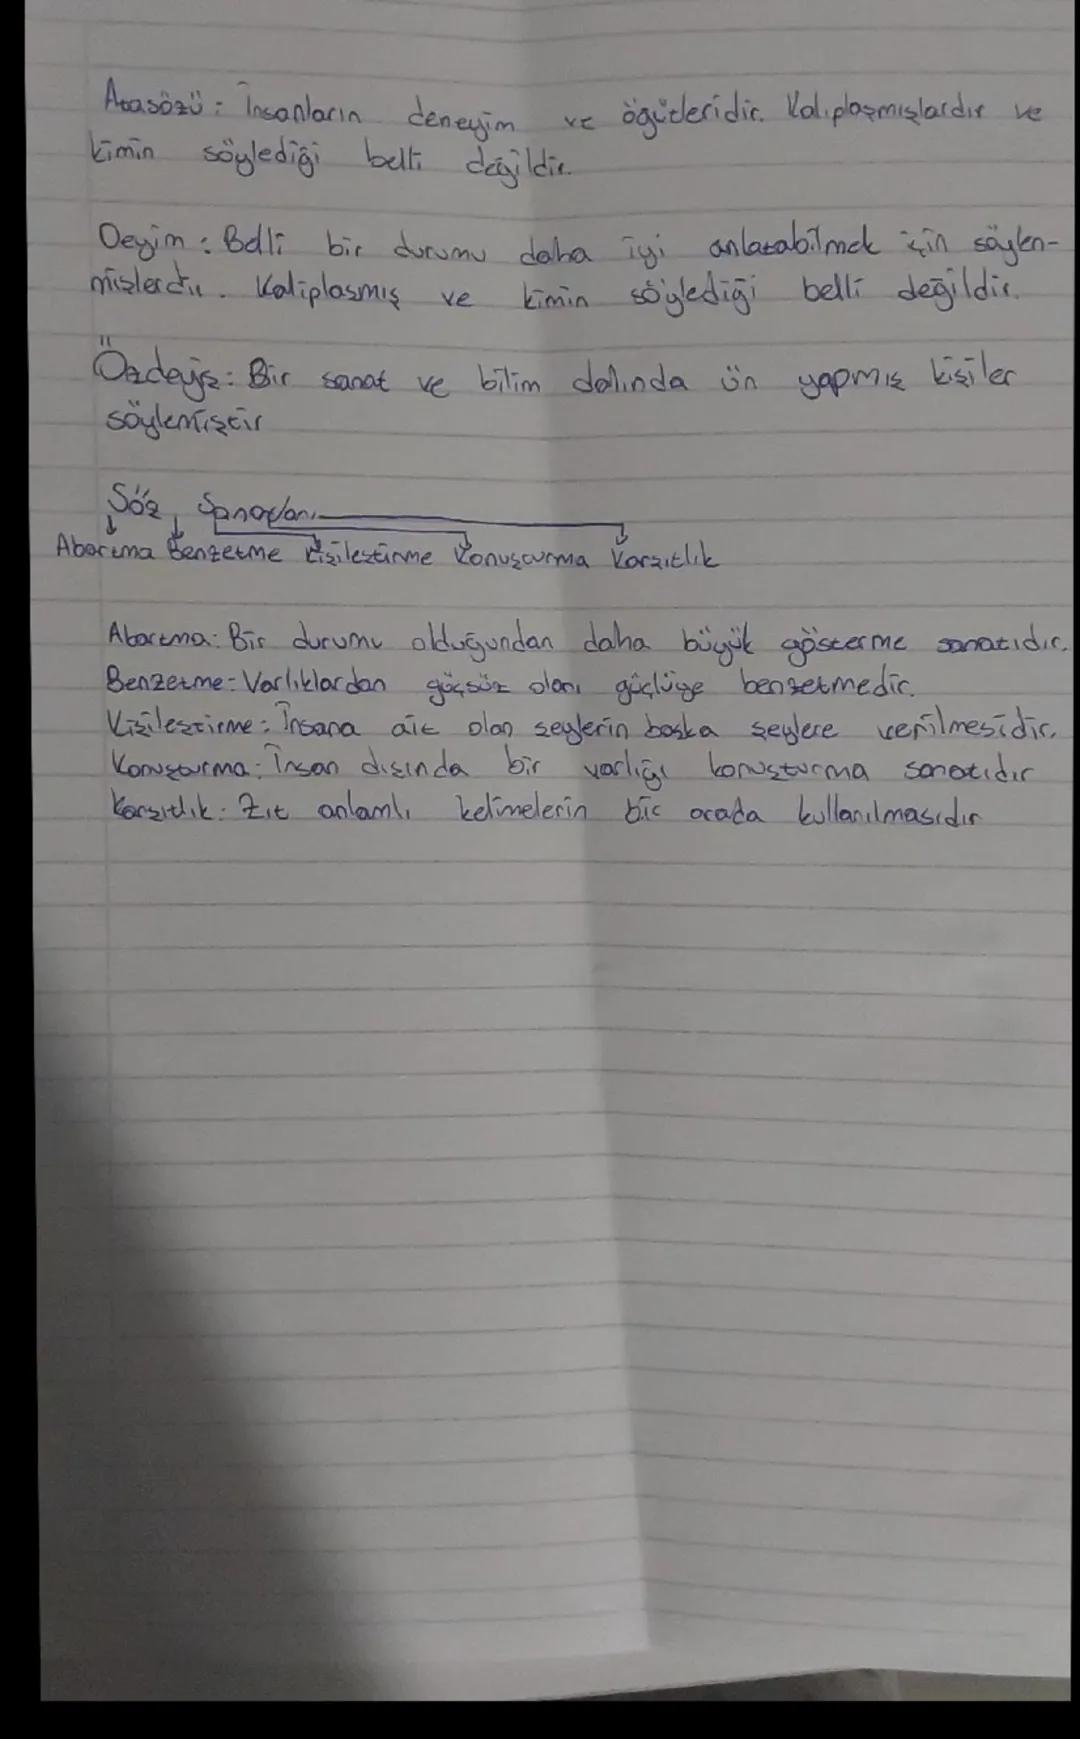 Atasözü: İnsanların deneyim ve öğütleridir. Kalıplaşmışlardır ve
kimin söylediği belli değildir.
Deyim: Belli bir durumu daha iyi anlatabilmek için söylen-
mişlerdir. Kalıplaşmış ve kimin söylediği belli değildir.
Özdeyiş: Bir sanat ve bilim dalında ün yapmış kişiler
söylemiştir
Söz Sanatları
Abartma Benzetme Kişileştirme Konuşturma Karşıtlık
Abartma: Bir durumu olduğundan daha büyük gösterme sanatıdır.
Benzetme: Varlıklardan güçsüz olanı güçlüye benzetmedir.
Kişileştirme: İnsana ait olan şeylerin başka şeylere verilmesidir.
Konuşturma: İnsan dışında bir varlığı konuşturma sanatıdır
Karşıtlık: Zıt anlamlı kelimelerin bir arada kullanılmasıdır